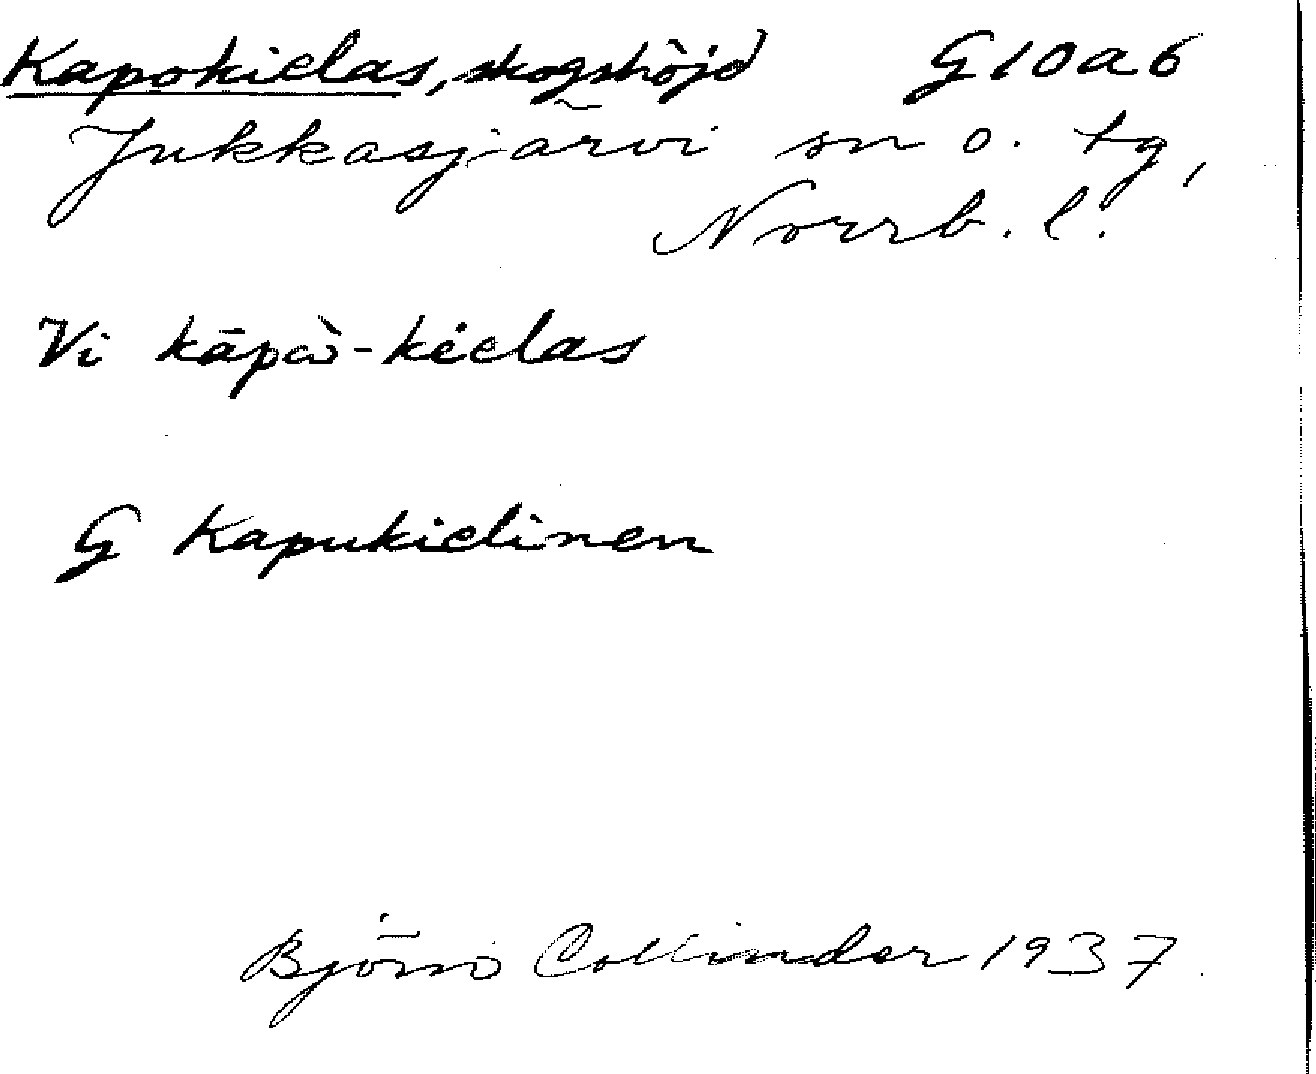 Kapokielas, skogshöjd G10a6
Jukkasjärvi sn o. tg,
Norrb. l.
Vi kāpà-kielas
G Kapukielinen
Björn Collinder 1937.